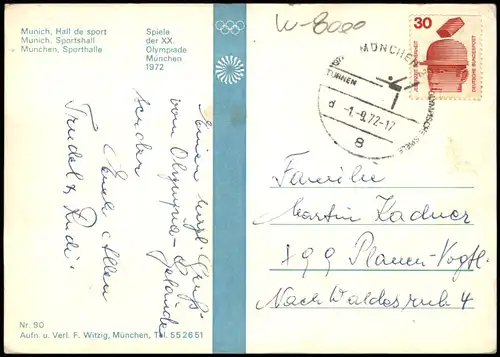 Munich, Hall de sport
Munich, Sportshall
München, Sporthalle
Spiele
der XX.
Olympiade
München
1972
W-8000
30
DEUTSCHE BUNDESPOST
MÜNCHEN
TURNEN
d -1.-9.72-17
8
OLYMPISCHE SPIELE
Einen Gruß
vom Olympia-Gelände
senden
Euch Allen
Trudel & Rudi
Familie
Martin Kadner
799 Plauen-Vogtl.
Nach Waldesruh 4
Nr. 90
Aufn. u. Verl. F. Witzig, München, Tel. 552651